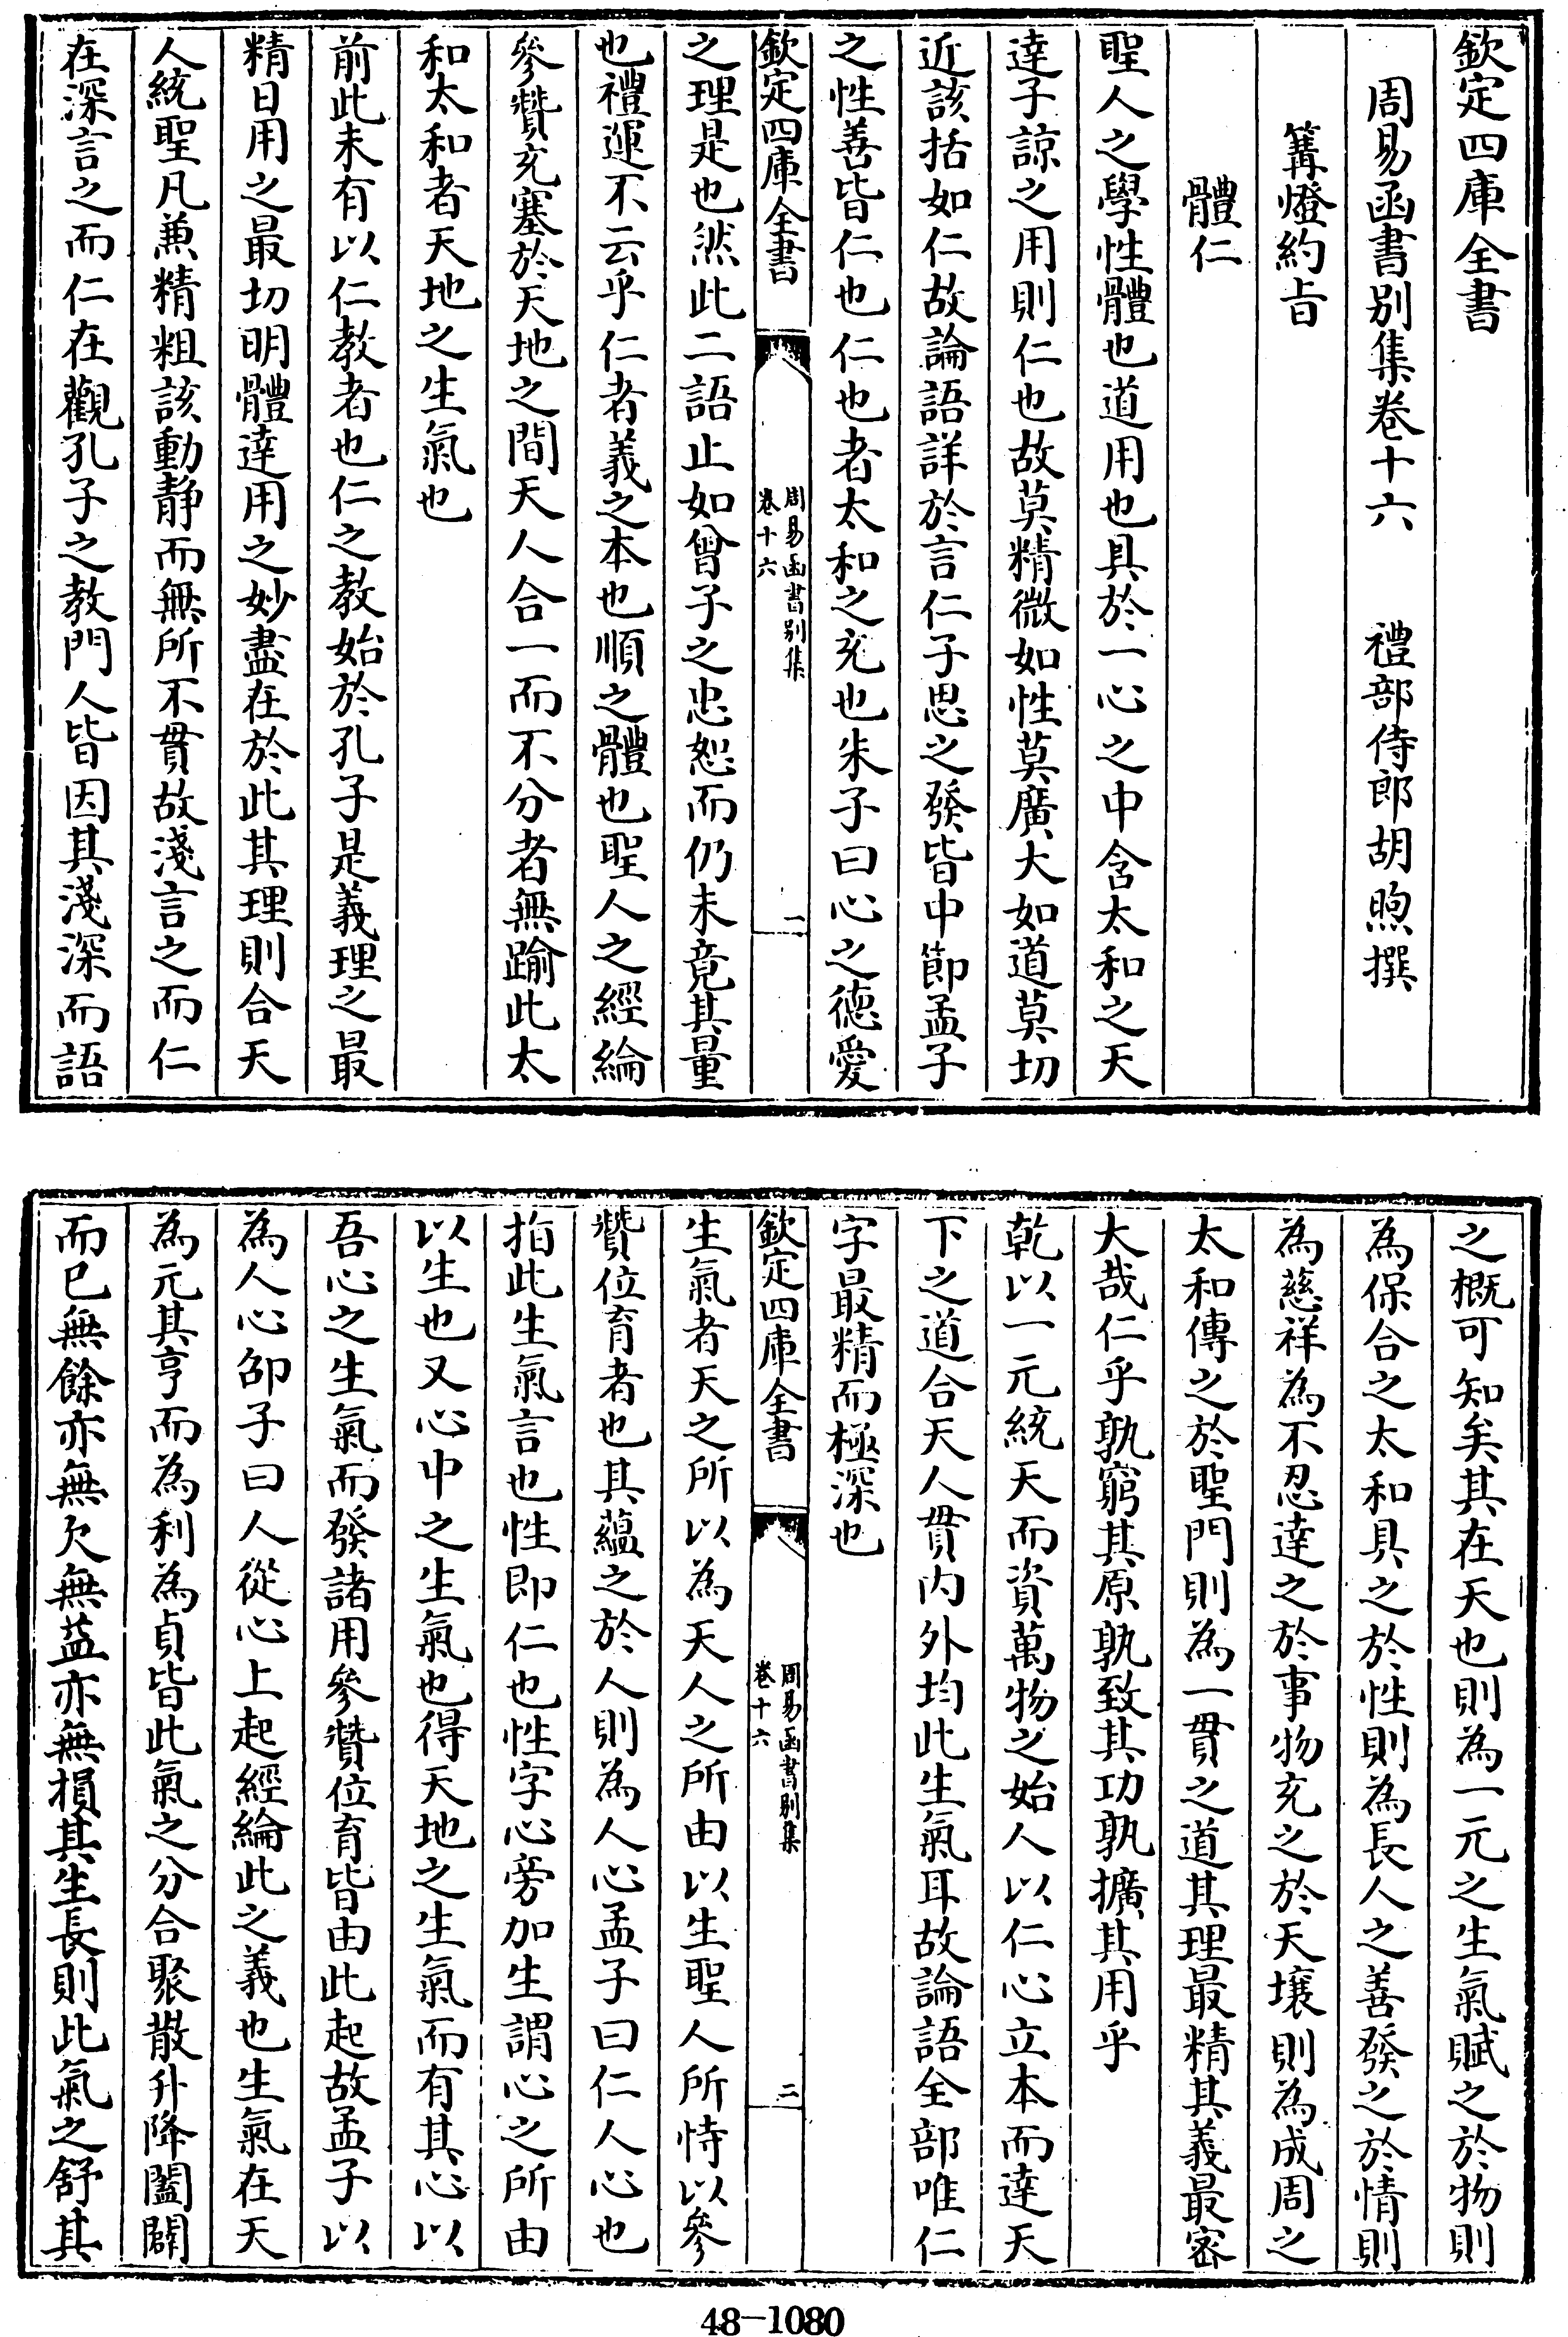 欽定四庫全書
周易函書别集卷十六　　禮部侍郎胡煦撰
篝燈約旨
體仁
聖人之學性體也道用也具於一心之中含太和之天
達子諒之用則仁也故莫精微如性莫廣大如道莫切
近該括如仁故論語詳於言仁子思之發皆中節孟子
之性善皆仁也仁也者太和之充也朱子曰心之德愛
欽定四庫全書
周易函書别集
卷十六
一
之理是也然此二語止如曾子之忠恕而仍未竟其量
也禮運不云乎仁者義之本也順之體也聖人之經綸
參贊充塞於天地之間天人合一而不分者無踰此太
和太和者天地之生氣也
前此未有以仁教者也仁之教始於孔子是義理之最
精日用之最切明體達用之妙盡在於此其理則合天
人統聖凡兼精粗該動静而無所不貫故淺言之而仁
在深言之而仁在觀孔子之教門人皆因其淺深而語
之概可知矣其在天也則為一元之生氣賦之於物則
為保合之太和具之於性則為長人之善發之於情則
為慈祥為不忍達之於事物充之於天壤則為成周之
太和傳之於聖門則為一貫之道其理最精其義最密
大哉仁乎孰窮其原孰致其功孰擴其用乎
乾以一元統天而資萬物之始人以仁心立本而達天
下之道合天人貫内外均此生氣耳故論語全部唯仁
字最精而極深也
欽定四庫全書
周易函書别集
卷十六
二
生氣者天之所以為天人之所由以生聖人所恃以參
贊位育者也其蘊之於人則為人心孟子曰仁人心也
指此生氣言也性即仁也性字心旁加生謂心之所由
以生也又心中之生氣也得天地之生氣而有其心以
吾心之生氣而發諸用參贊位育皆由此起故孟子以
為人心邵子曰人從心上起經綸此之義也生氣在天
為元其亨而為利為貞皆此氣之分合聚散升降闔闢
而已無餘亦無欠無益亦無損其生長則此氣之舒其
48-1080